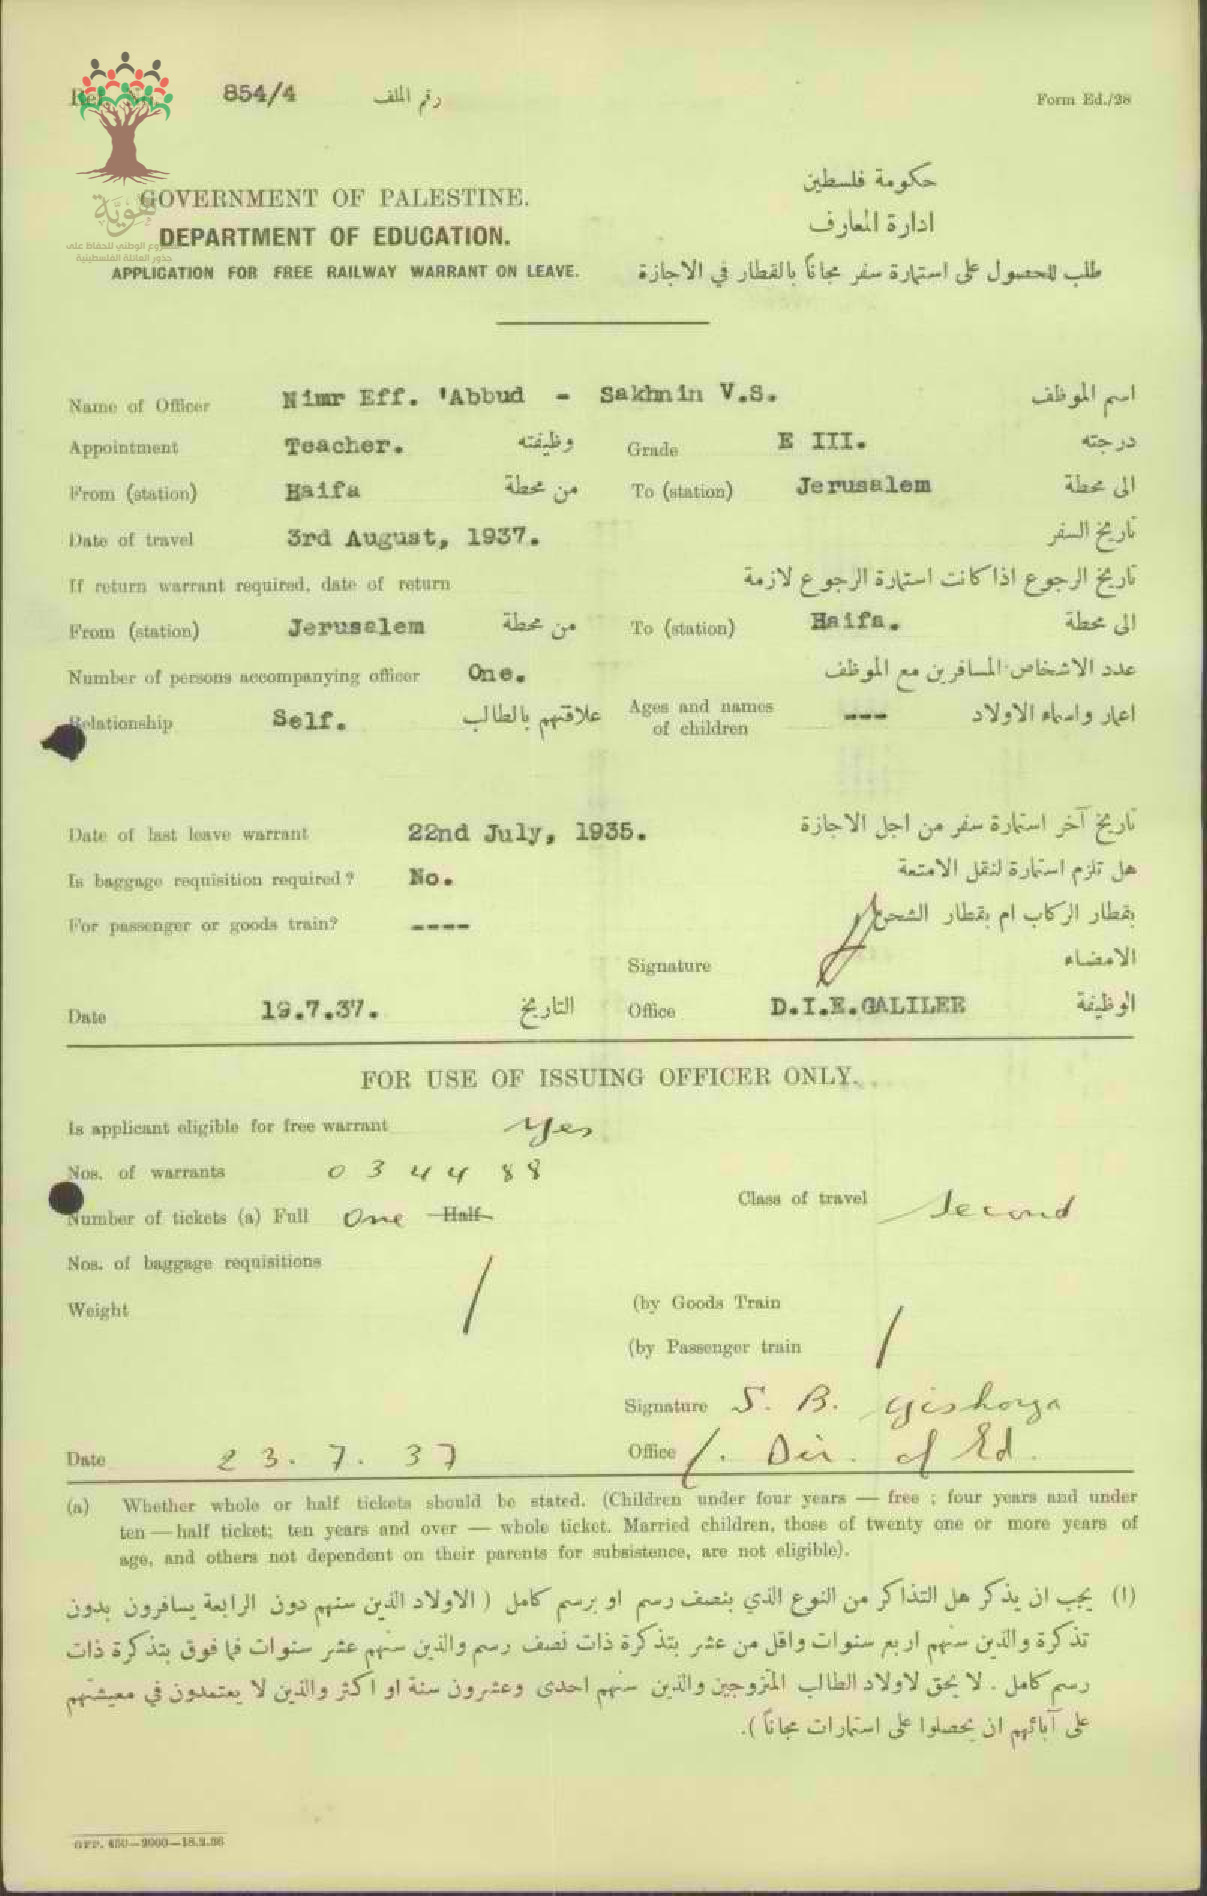 Ref. No. 854/4 رقم الملف Form Ed./28
هَوِيَّة
المشروع الوطني للحفاظ على
جذور العائلة الفلسطينية
GOVERNMENT OF PALESTINE. حكومة فلسطين
DEPARTMENT OF EDUCATION. ادارة المعارف
APPLICATION FOR FREE RAILWAY WARRANT ON LEAVE. طلب للحصول على استمارة سفر مجاناً بالقطار في الاجازة
Name of Officer Nimr Eff. 'Abbud - Sakhnin V.S. اسم الموظف
Appointment Teacher. وظيفته Grade E III. درجته
From (station) Haifa من محطة To (station) Jerusalem الى محطة
Date of travel 3rd August, 1937. تاريخ السفر
If return warrant required, date of return تاريخ الرجوع اذا كانت استمارة الرجوع لازمة
From (station) Jerusalem من محطة To (station) Haifa. الى محطة
Number of persons accompanying officer One. عدد الاشخاص المسافرين مع الموظف
Relationship Self. علاقتهم بالطالب Ages and names of children --- اعمار واسماء الاولاد
Date of last leave warrant 22nd July, 1935. تاريخ آخر استمارة سفر من اجل الاجازة
Is baggage requisition required? No. هل تلزم استمارة لنقل الامتعة
For passenger or goods train? ---- بقطار الركاب ام بقطار الشحن
Signature الامضاء
Date 19.7.37. التاريخ Office D.I.E.GALILEE الوظيفة
FOR USE OF ISSUING OFFICER ONLY.
Is applicant eligible for free warrant Yes
Nos. of warrants 034488
Class of travel Second
Number of tickets (a) Full One Half
Nos. of baggage requisitions
Weight (by Goods Train
(by Passenger train
Signature S. B.
Date 23.7.37 Office /. Dir. of Ed.
(a) Whether whole or half tickets should be stated. (Children under four years — free ; four years and under
ten — half ticket; ten years and over — whole ticket. Married children, those of twenty one or more years of
age, and others not dependent on their parents for subsistence, are not eligible).
(١) يجب ان يذكر هل التذاكر من النوع الذي بنصف رسم او برسم كامل ( الاولاد الذين سنهم دون الرابعة يسافرون بدون
تذكرة والذين سنهم اربع سنوات واقل من عشر بتذكرة ذات نصف رسم والذين سنهم عشر سنوات فما فوق بتذكرة ذات
رسم كامل . لا يحق لاولاد الطالب المتزوجين والذين سنهم احدى وعشرون سنة او اكثر والذين لا يعتمدون في معيشتهم
على آبائهم ان يحصلوا على استمارات مجاناً ).
GPP. 450—2000—18.2.36